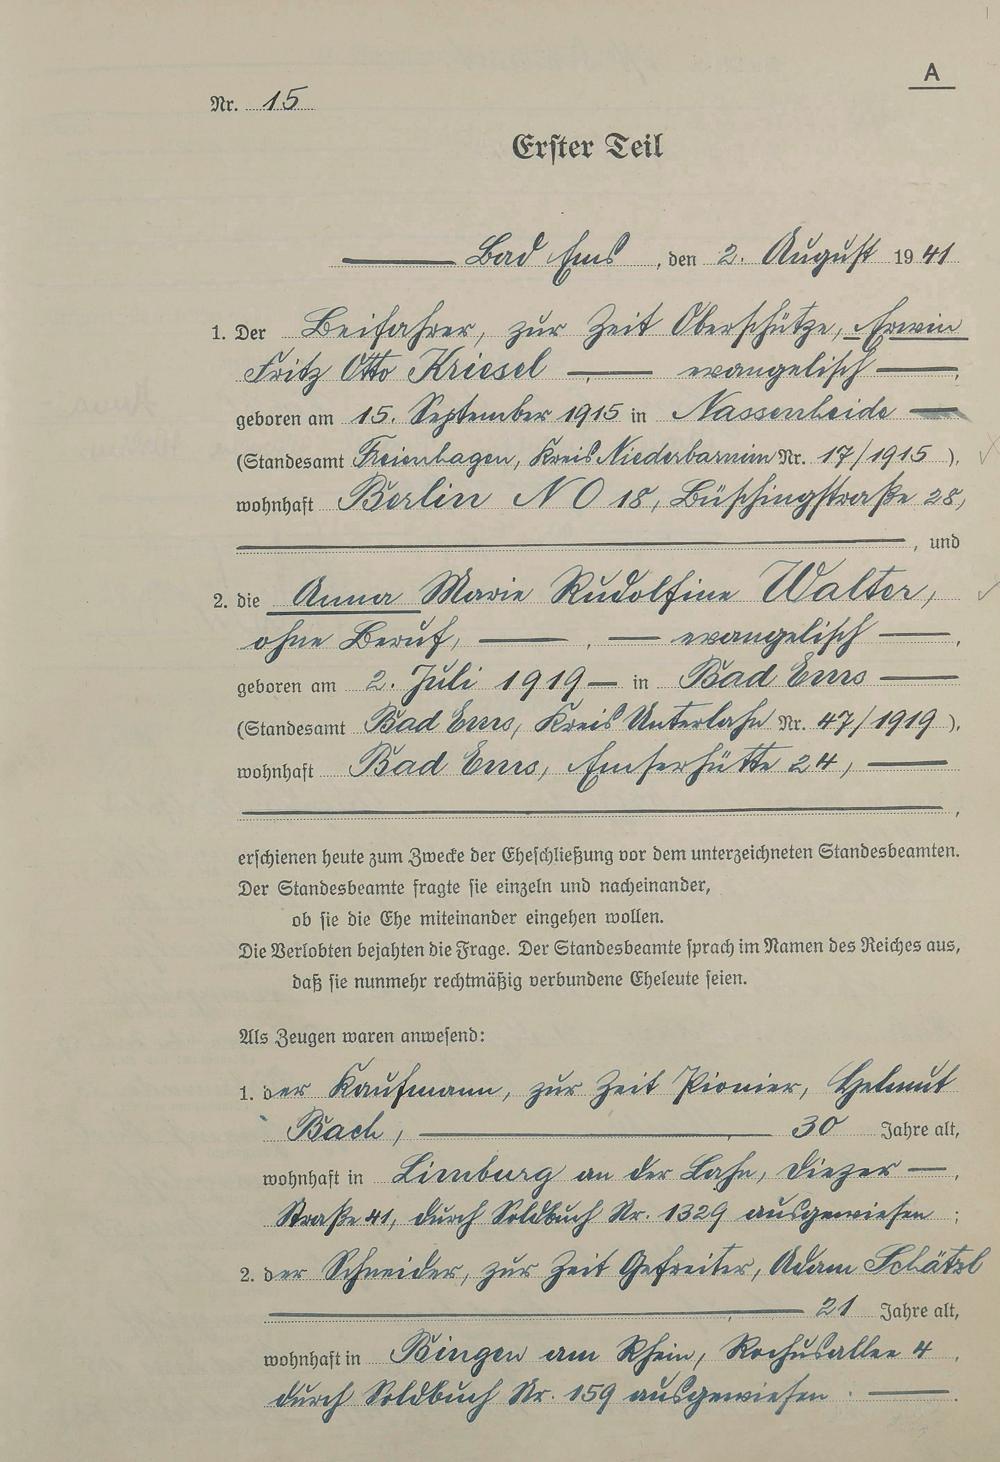 A
Nr. 15
Erster Teil
Bad Ems, den 2. August 1941
1. Der Beifahrer, zur Zeit Oberschütze, Erwin
Fritz Otto Kriesel evangelisch,
geboren am 15. September 1915 in Nassenheide
(Standesamt Freienhagen, Kreis Niederbarnim Nr. 17/1915),
wohnhaft Berlin NO 18, Büschingstraße 28,
, und
2. die Anna Marie Rudolfine Walter,
ohne Beruf, evangelisch,
geboren am 2. Juli 1919 in Bad Ems
(Standesamt Bad Ems, Kreis Unterlahn Nr. 47/1919),
wohnhaft Bad Ems, Emserhütte 24,
erschienen heute zum Zwecke der Eheschließung vor dem unterzeichneten Standesbeamten.
Der Standesbeamte fragte sie einzeln und nacheinander,
ob sie die Ehe miteinander eingehen wollen.
Die Verlobten bejahten die Frage. Der Standesbeamte sprach im Namen des Reiches aus,
daß sie nunmehr rechtmäßig verbundene Eheleute seien.
Als Zeugen waren anwesend:
1. der Kaufmann, zur Zeit Pionier, Helmut
Bach, 30 Jahre alt,
wohnhaft in Limburg an der Lahn, Diezer
Straße 41, durch Soldbuch Nr. 1329 ausgewiesen;
2. der Schneider, zur Zeit Gefreiter, Adam Schätzl
21 Jahre alt,
wohnhaft in Bingen am Rhein, Rochusallee 4,
durch Soldbuch Nr. 159 ausgewiesen.